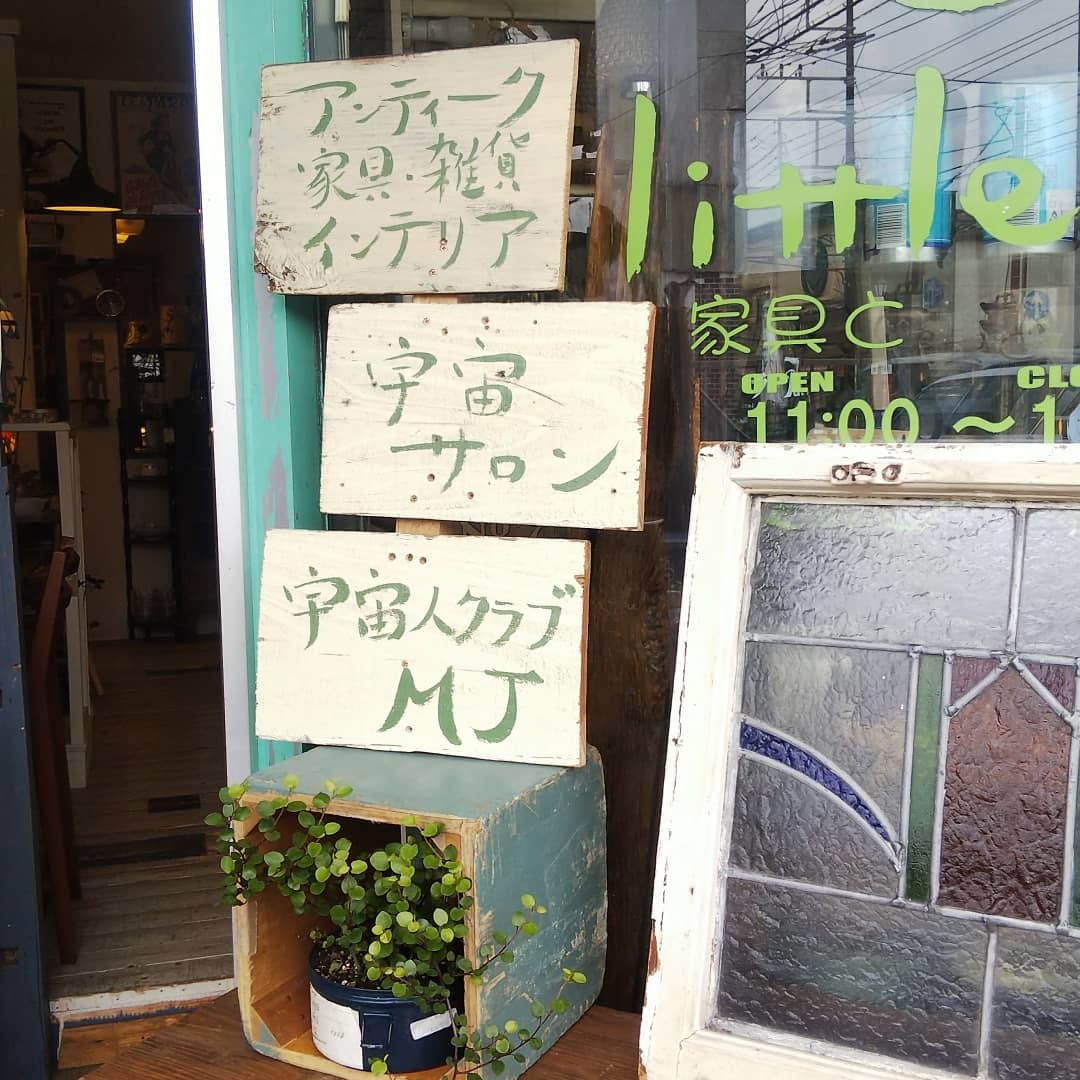 アンティーク
家具・雑貨
インテリア
宇宙
サロン
宇宙人クラブ
MJ
little
家具と
OPEN
11:00 ～1
CLO